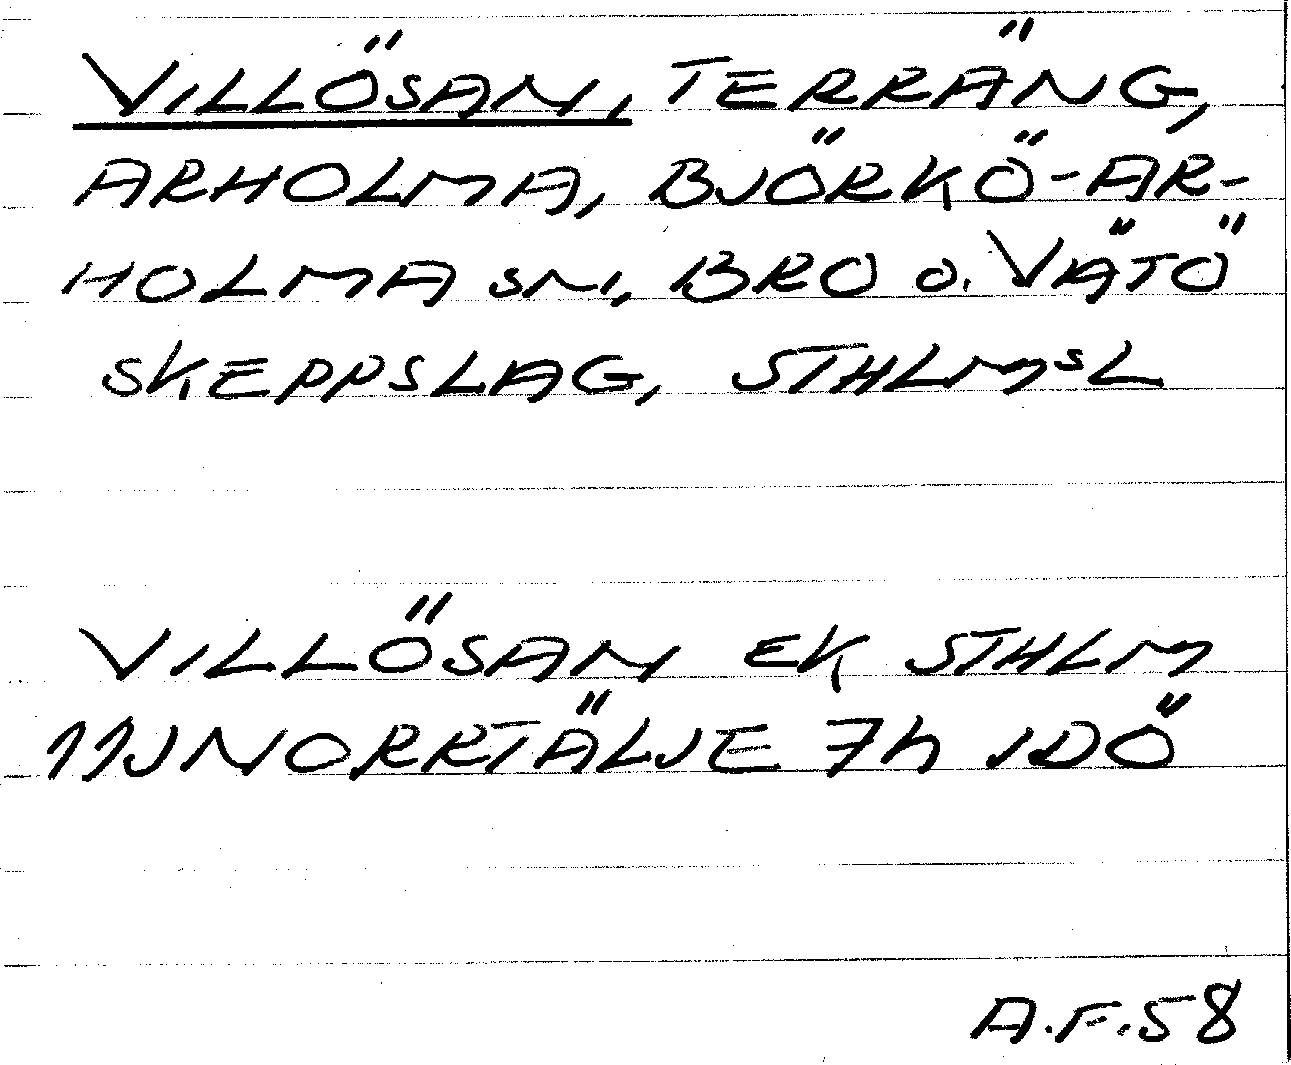 VILLÖSAN, TERRÄNG,
ARHOLMA, BJÖRKÖ-AR-
HOLMA SN, BRO O. VÄTÖ
SKEPPSLAG, STHLMSL
VILLÖSAN EK STHLM
11JNORRTÄLJE 7h IDÖ
A.F.58